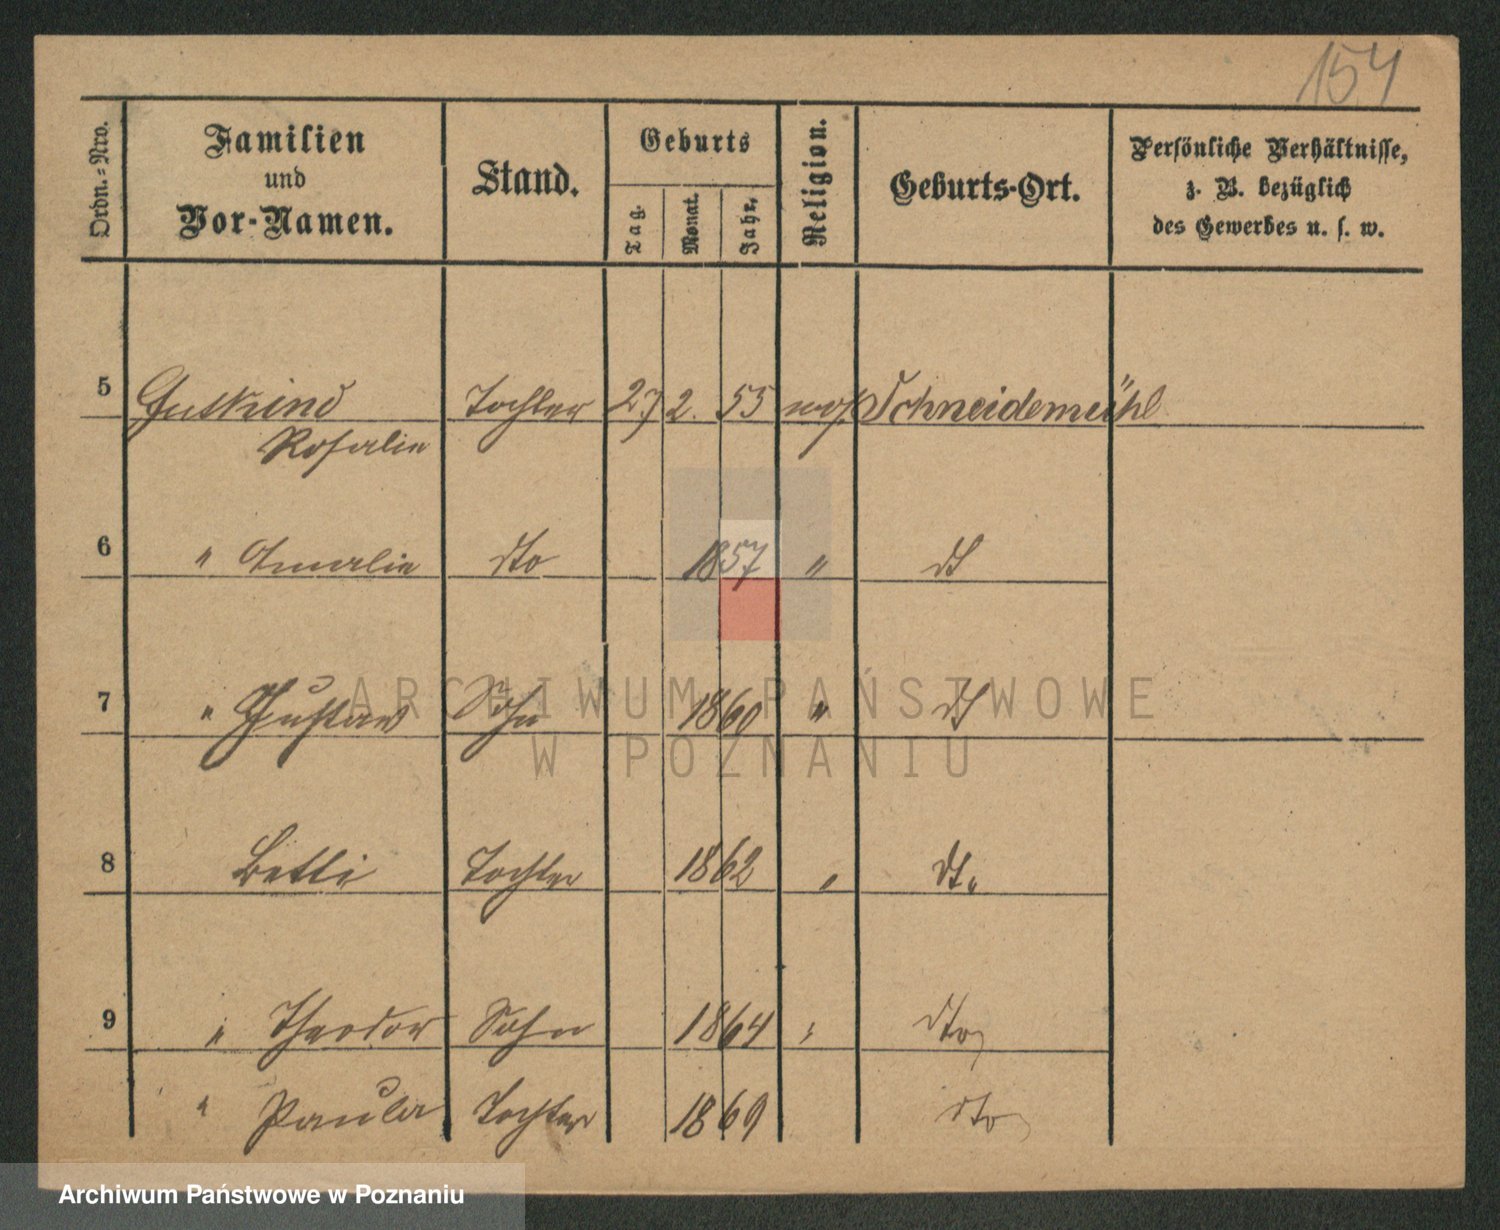 154
Ordn.=Nro.
Familien
und
Vor-Namen.
Stand.
Geburts
Tag.
Monat.
Jahr.
Religion.
Geburts-Ort.
Persönliche Verhältnisse,
z. B. bezüglich
des Gewerbes u. s. w.
5 Gutkind Tochter 27 2. 55 mos. Schneidemühl
Rosalie
6 " Amalie dto 1857 " dt
7 " Gustav Sohn 1860 " dt
8 Betti Tochter 1862 " dt.
9 " Theodor Sohn 1864 " dto
" Paula Tochter 1869 dto
ARCHIWUM PAŃSTWOWE
W POZNANIU
Archiwum Państwowe w Poznaniu